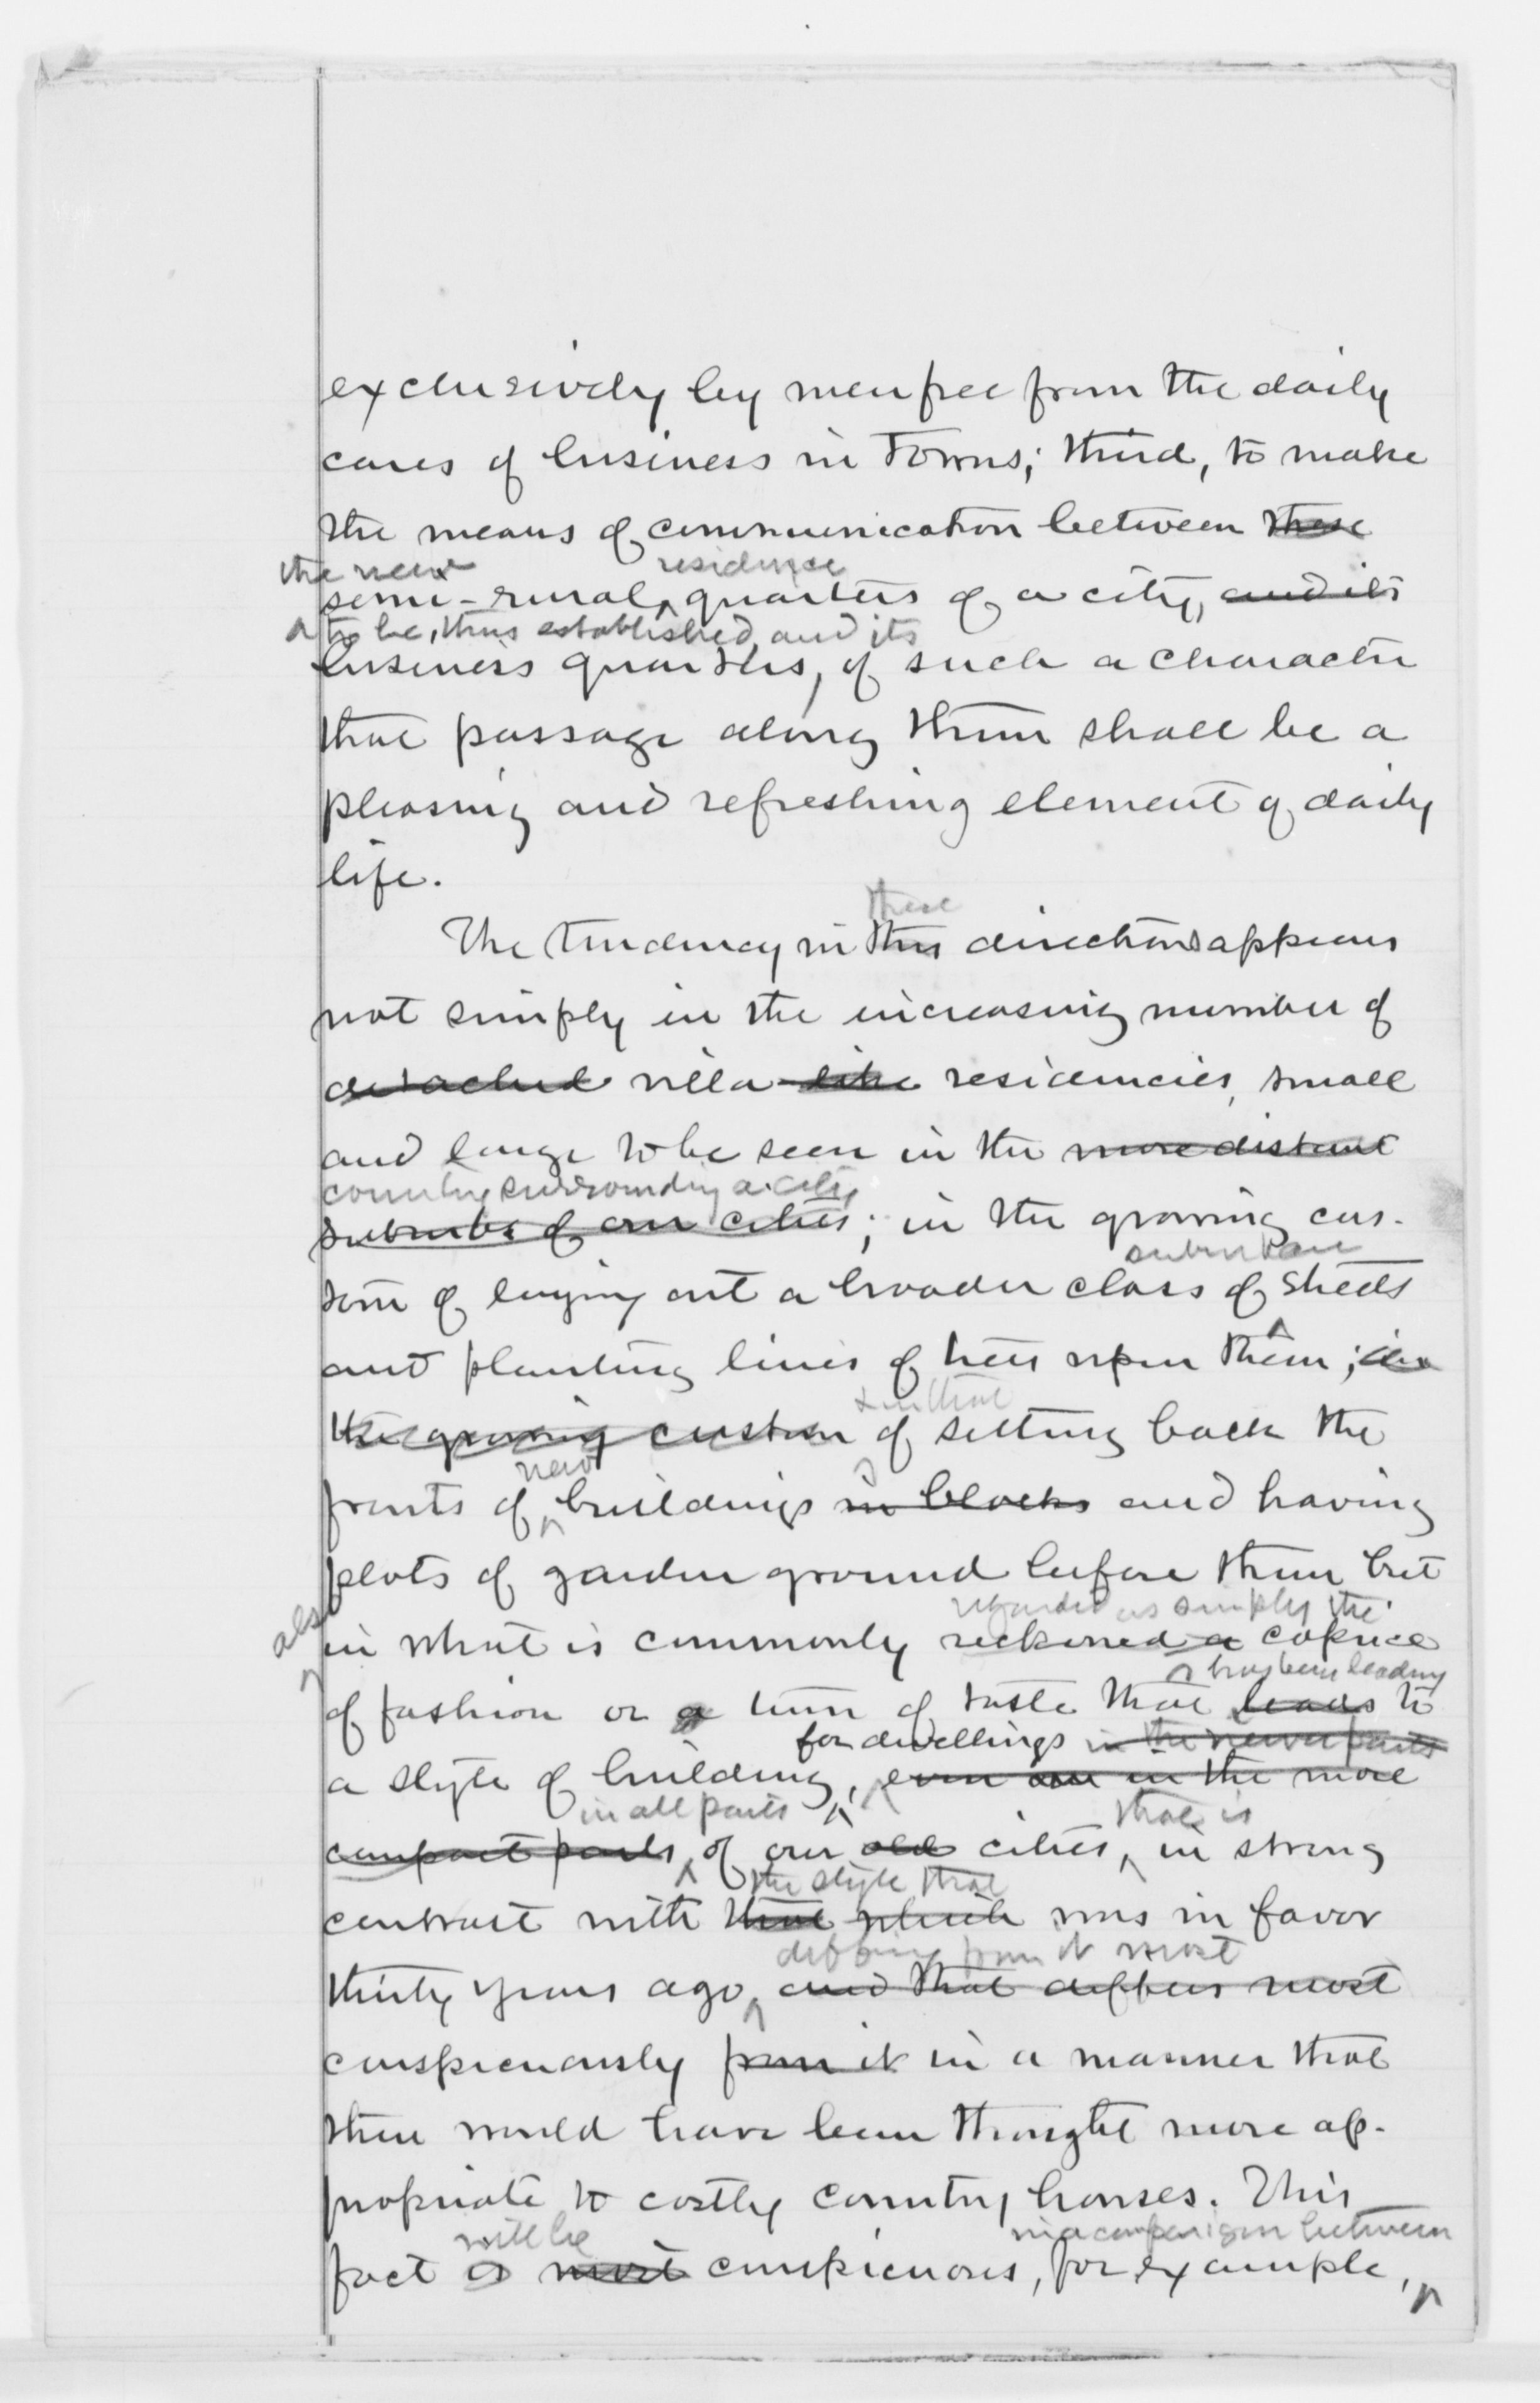 exclusively by men free from the daily
cares of business in Towns; third, to make
the means of communication between these
the new residence
semi-rural, quarters of a city, and its
to be, thus established, and its
business quarters, of such a character
that passage along them shall be a
pleasing and refreshing element of daily
life.
these
The tendency in this directions appears
not simply in the increasing number of
detached villa-like residencies, small
and large to be seen in the more distant
country surrounding a city
suburbs of our cities; in the growing cus-
suburban
tom of laying out a broader class of streets
and planting lines of trees upon them; in
& in that
the growing custom of setting back the
new
fronts of buildings in blocks and having
plots of garden ground before them but
regarded as simply the
also
in what is commonly reckoned a caprice
has been leading
of fashion or a turn of taste that leads to
for dwellings in the newer parts
a style of building, even in the more
in all parts that is
compact parts, of our old cities, in strong
the style that
contrast with that which was in favor
differing from it most
thirty years ago, and that differs most
conspicuously from it in a manner that
then would have been thought more ap-
propriate to costly country houses. This
will be in a comparison between
fact is most conspicuous, for example,